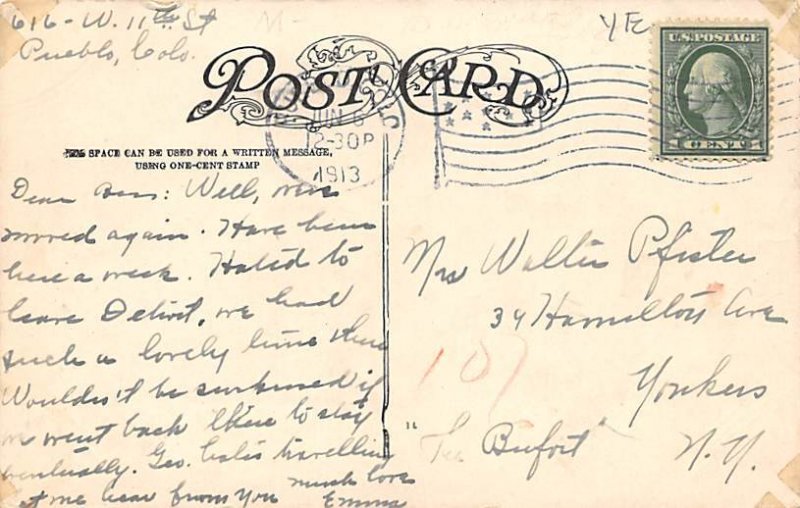 616 - W. 11th St
Pueblo, Colo.
M-
YE
POST CARD
U.S. POSTAGE
1 CENT 1
JUN 6
2-30P
1913
THIS SPACE CAN BE USED FOR A WRITTEN MESSAGE,
USING ONE-CENT STAMP
Dear Bess: Well, we're
moved again. Have been
here a week. Hated to
leave Detroit, we had
such a lovely time there
Wouldn't be surprised if
we went back there to stay
eventually. Geo. hates travelling
Let me hear from you
much love
Emma
Mrs Walter Pfister
34 Hamilton Ave
107
Yonkers
"The Bufort"
N.Y.